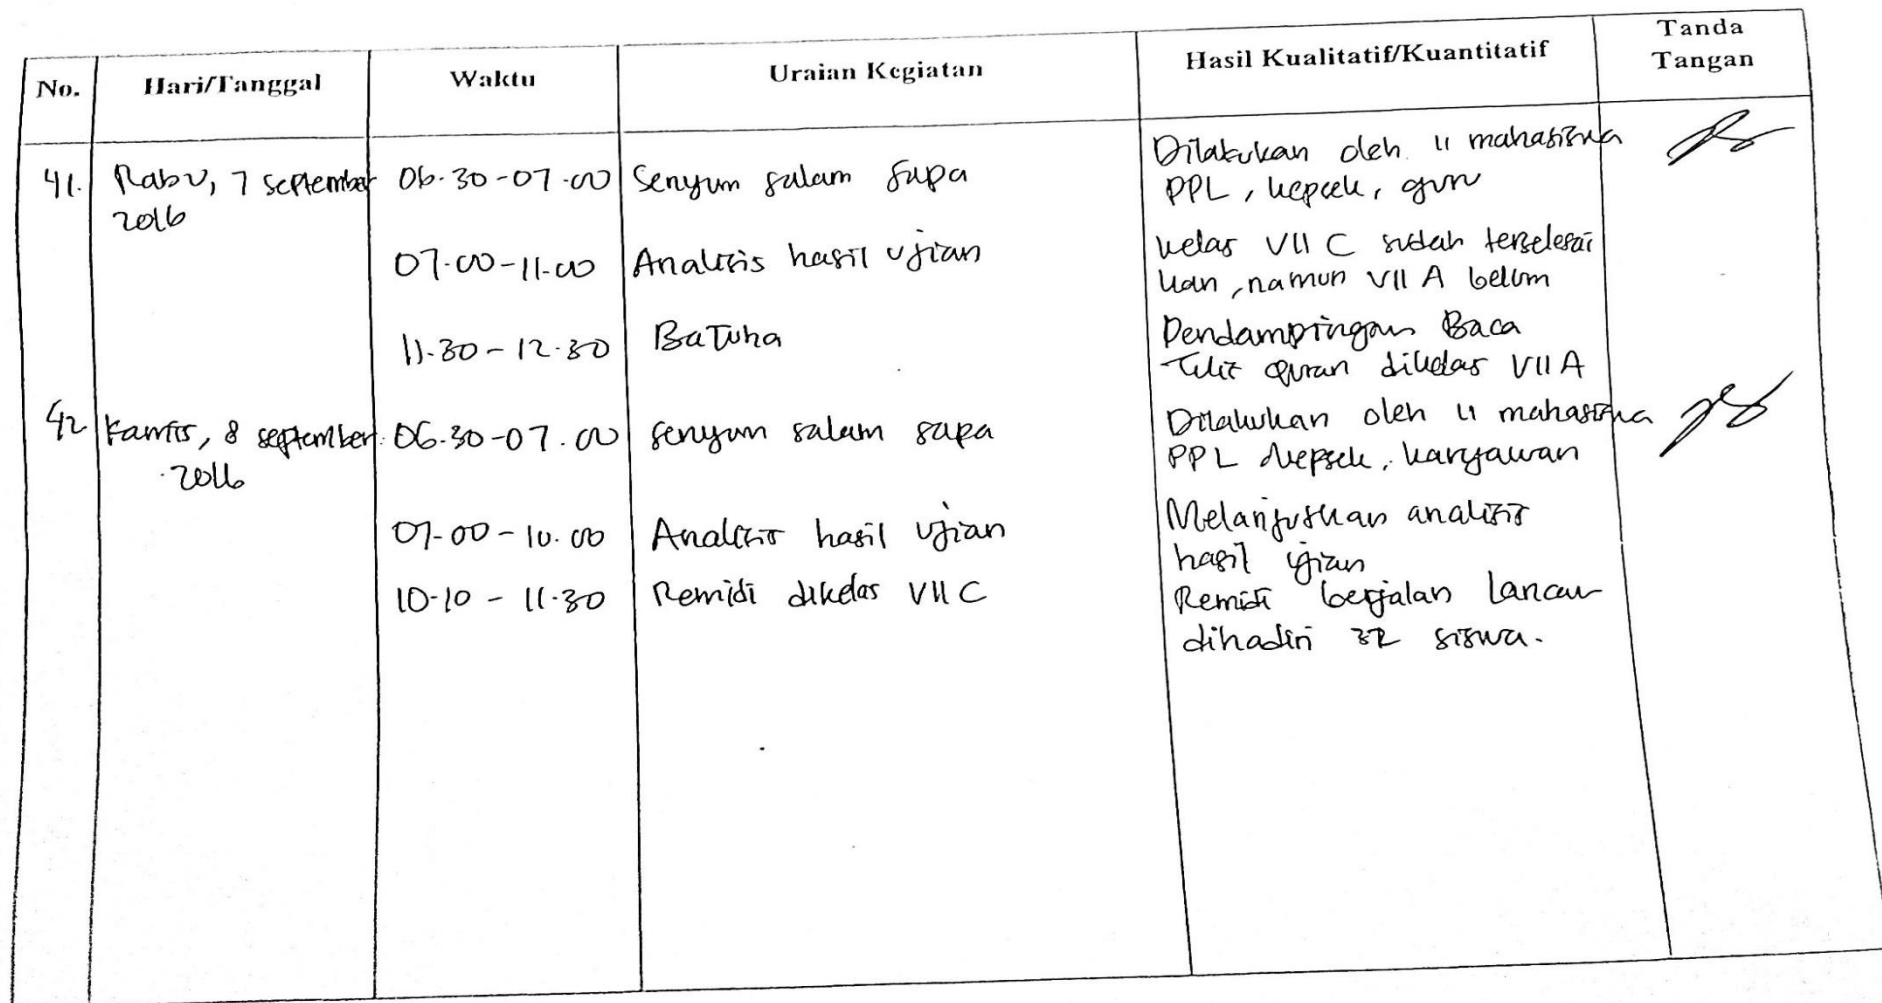 No. Hari/Tanggal Waktu Uraian Kegiatan Hasil Kualitatif/Kuantitatif Tanda Tangan
41. Rabu, 7 september 06.30-07.00 Senyum salam sapa Dilakukan oleh 11 mahasiswa
2016 PPL, kepsek, guru
07.00-11.00 Analisis hasil ujian kelas VII C sudah terselesai
kan, namun VII A belum
11.30-12.30 BaTuha Pendampingan Baca
Tulis Quran dikelas VII A
42 Kamis, 8 september 06.30-07.00 senyum salam sapa Dilakukan oleh 11 mahasiswa
2016 PPL kepsek, karyawan
07.00-10.00 Analisis hasil ujian Melanjutkan analisis
hasil ujian
10.10-11.30 Remidi dikelas VII C Remidi berjalan lancar
dihadiri 32 siswa.